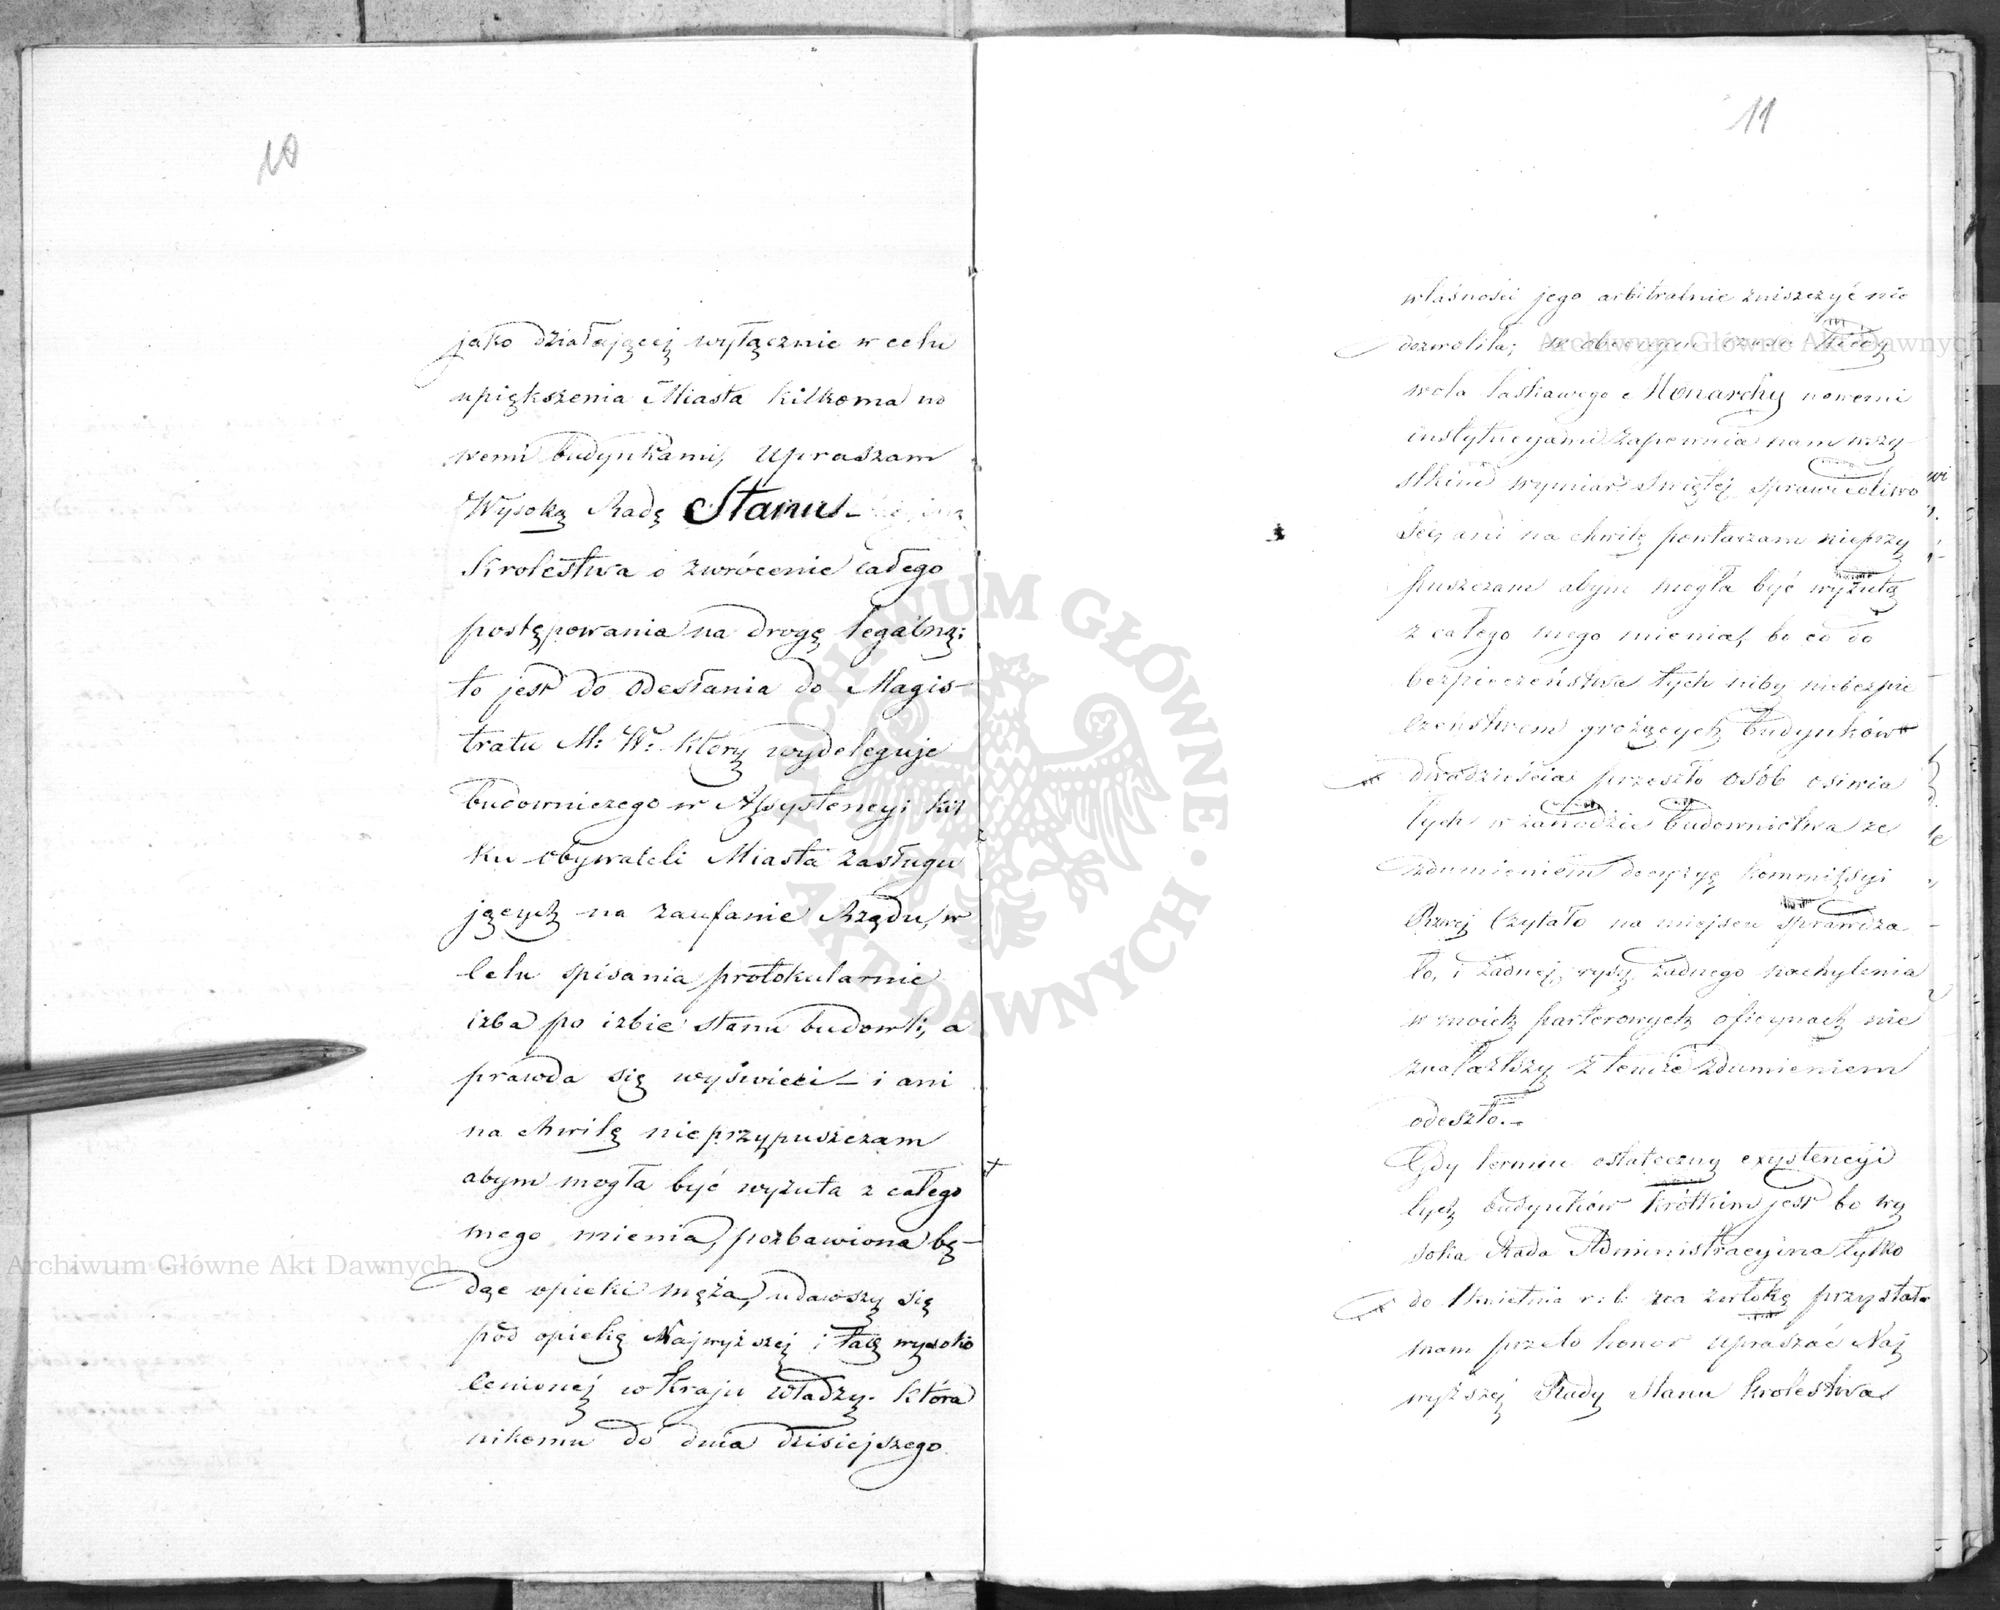 10
jako działającej wyłącznie w celu
upiększenia Miasta kilkoma no
wemi budynkami, upraszam
Wysoką Radę Stanu
Krolestwa o zwrócenie całego
postępowania na drogę legalną:
to jest do odesłania do Magis-
tratu M: W: który wydeleguje
budowniczego w Assystencyi kil
ku obywateli Miasta zasługu
jących na zaufanie Rządu, w
celu spisania protokularnie
izba po izbie stanu budowli, a
prawda się wyświeci - i ani
na chwilę nieprzypuszczam
abym mogła być wyzuta z całego
mego mienia, pozbawiona bę-
dąc opieki męża, udawszy się
pod opiekę Najwyższej i tak wysoko
cenionej w kraju władzy. która
nikomu do dnia dzisiejszego
11
własności jego arbitralnie zniszczyć nie
dozwoliła; w obecnym czasie kiedy
wola łaskawego Monarchy nowemi
instytucyami zapewnia nam wszy
stkim wymiar świętej sprawiedliwo
ści, ani na chwilę powtarzam nieprzy
puszczam abym mogła być wyzutą
z całego mego mienia, bo co do
bezpieczeństwa tych niby niebezpie
czeństwem grożących budynków
dwadzieścia przeszło osób osiwia
łych w zawodzie budownictwa ze
zdumieniem decyzyę Kommissyi
Rzwej czytało na miejscu sprawdza
ło, i żadnej rysy, żadnego nachylenia
w moich parterowych oficynach nie
znalazłszy z temże zdumieniem
odeszło.-
Gdy termin ostateczny exystencyi
tych budynków krótkim jest bo wy
soka Rada Administracyjna tylko
do 1 Kwietnia r: b: za zwłoką przystała
mam przeto honor upraszać Naj
wyższej Rady Stanu Krolestwa
Archiwum Główne Akt Dawnych
Archiwum Główne Akt Dawnych
ARCHIWUM GŁÓWNE AKT DAWNYCH